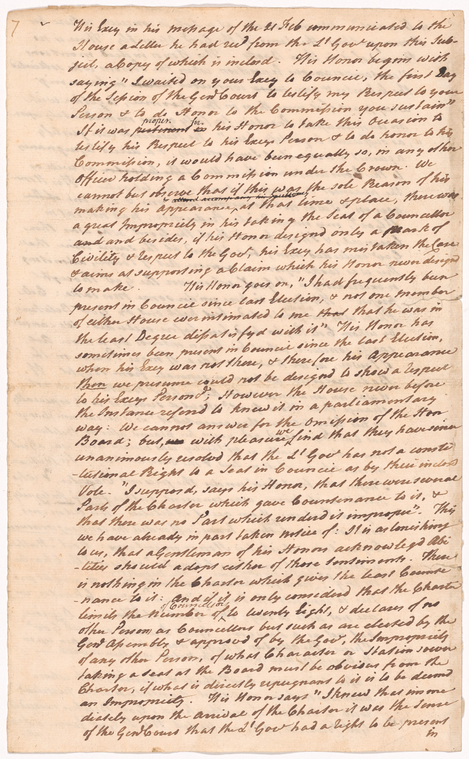 7
His Excy in his message of the 21 Feb communicated to the
House a letter he had recd from the Lt Govr upon this Sub-
ject, a Copy of which is inclosd. His Honor begins with
saying "I waited on your Excy to Council, the first Day
of the Session of the Genl Court to testify my Respect to your
Person & to do Honor to the Commission you sustain"
proper in
If it was pertinent in his Honor to take this Occasion to
testify his Respect to his Excys Person & to do honor to his
Commission, it would have been equally so, in any other
Officer holding a Commission under the Crown. We
cannot but observe that if this was the sole Reason of his
making his Appearance, at that time & place, there was
a great Impropriety in his taking the Seat of a Councellor
and and besides, if his Honor designd only a Mask of
Civility & respect to the Govr, his Excy has mistaken the Case
& aims at supporting a Claim which his Honor never designd
to make. His Honor goes on, "I had frequently been
present in Council since last Election, & not one member
of either House ever intimated to me that he was in
the least Degree dissatisfyd with it" His Honor has
sometimes been present in Council since the last Election,
when his Excy was not there, & therefore his Appearance
then we presume could not be designd to show a respect
to his Excys Person; However the House never before
the Instance referd to knew it in a parliamentary
way: We cannot answer for the Omission of the Hon
we
Board; but with pleasure find that they have since
unanimously resolvd that the Lt Govr has not a consti-
tutional Right to a Seat in Council as by their inclosd
Vote. "I supposd, says his Honor, that there were several
Parts of the Charter which gave Countenance to it, &
that there was no Part which renderd it improper". This
we have already in part taken notice of: It is astonishing
to us, that a Gentleman of his Honors acknowledgd Abi-
lities should adopt either of those sentiments. There
is nothing in the Charter which gives the least Counte-
nance to it: and if it is only considerd that the Charter
of Councellors
limits the Number to twenty Eight, & declares of no
other Persons as Councellors but such as are elected by the
Genl Assembly & approvd of by the Govr, the Impropriety
of any other Person, of what Character or Station soever
taking a seat at the Board must be obvious from the
Charter, if what is directly repugnant to it is to be deemd
an Impropriety. His Honor says "I knew that imme
diately upon the arrival of the Charter it was the sense
of the Genl Court that the Lt Govr had a right to be present
in